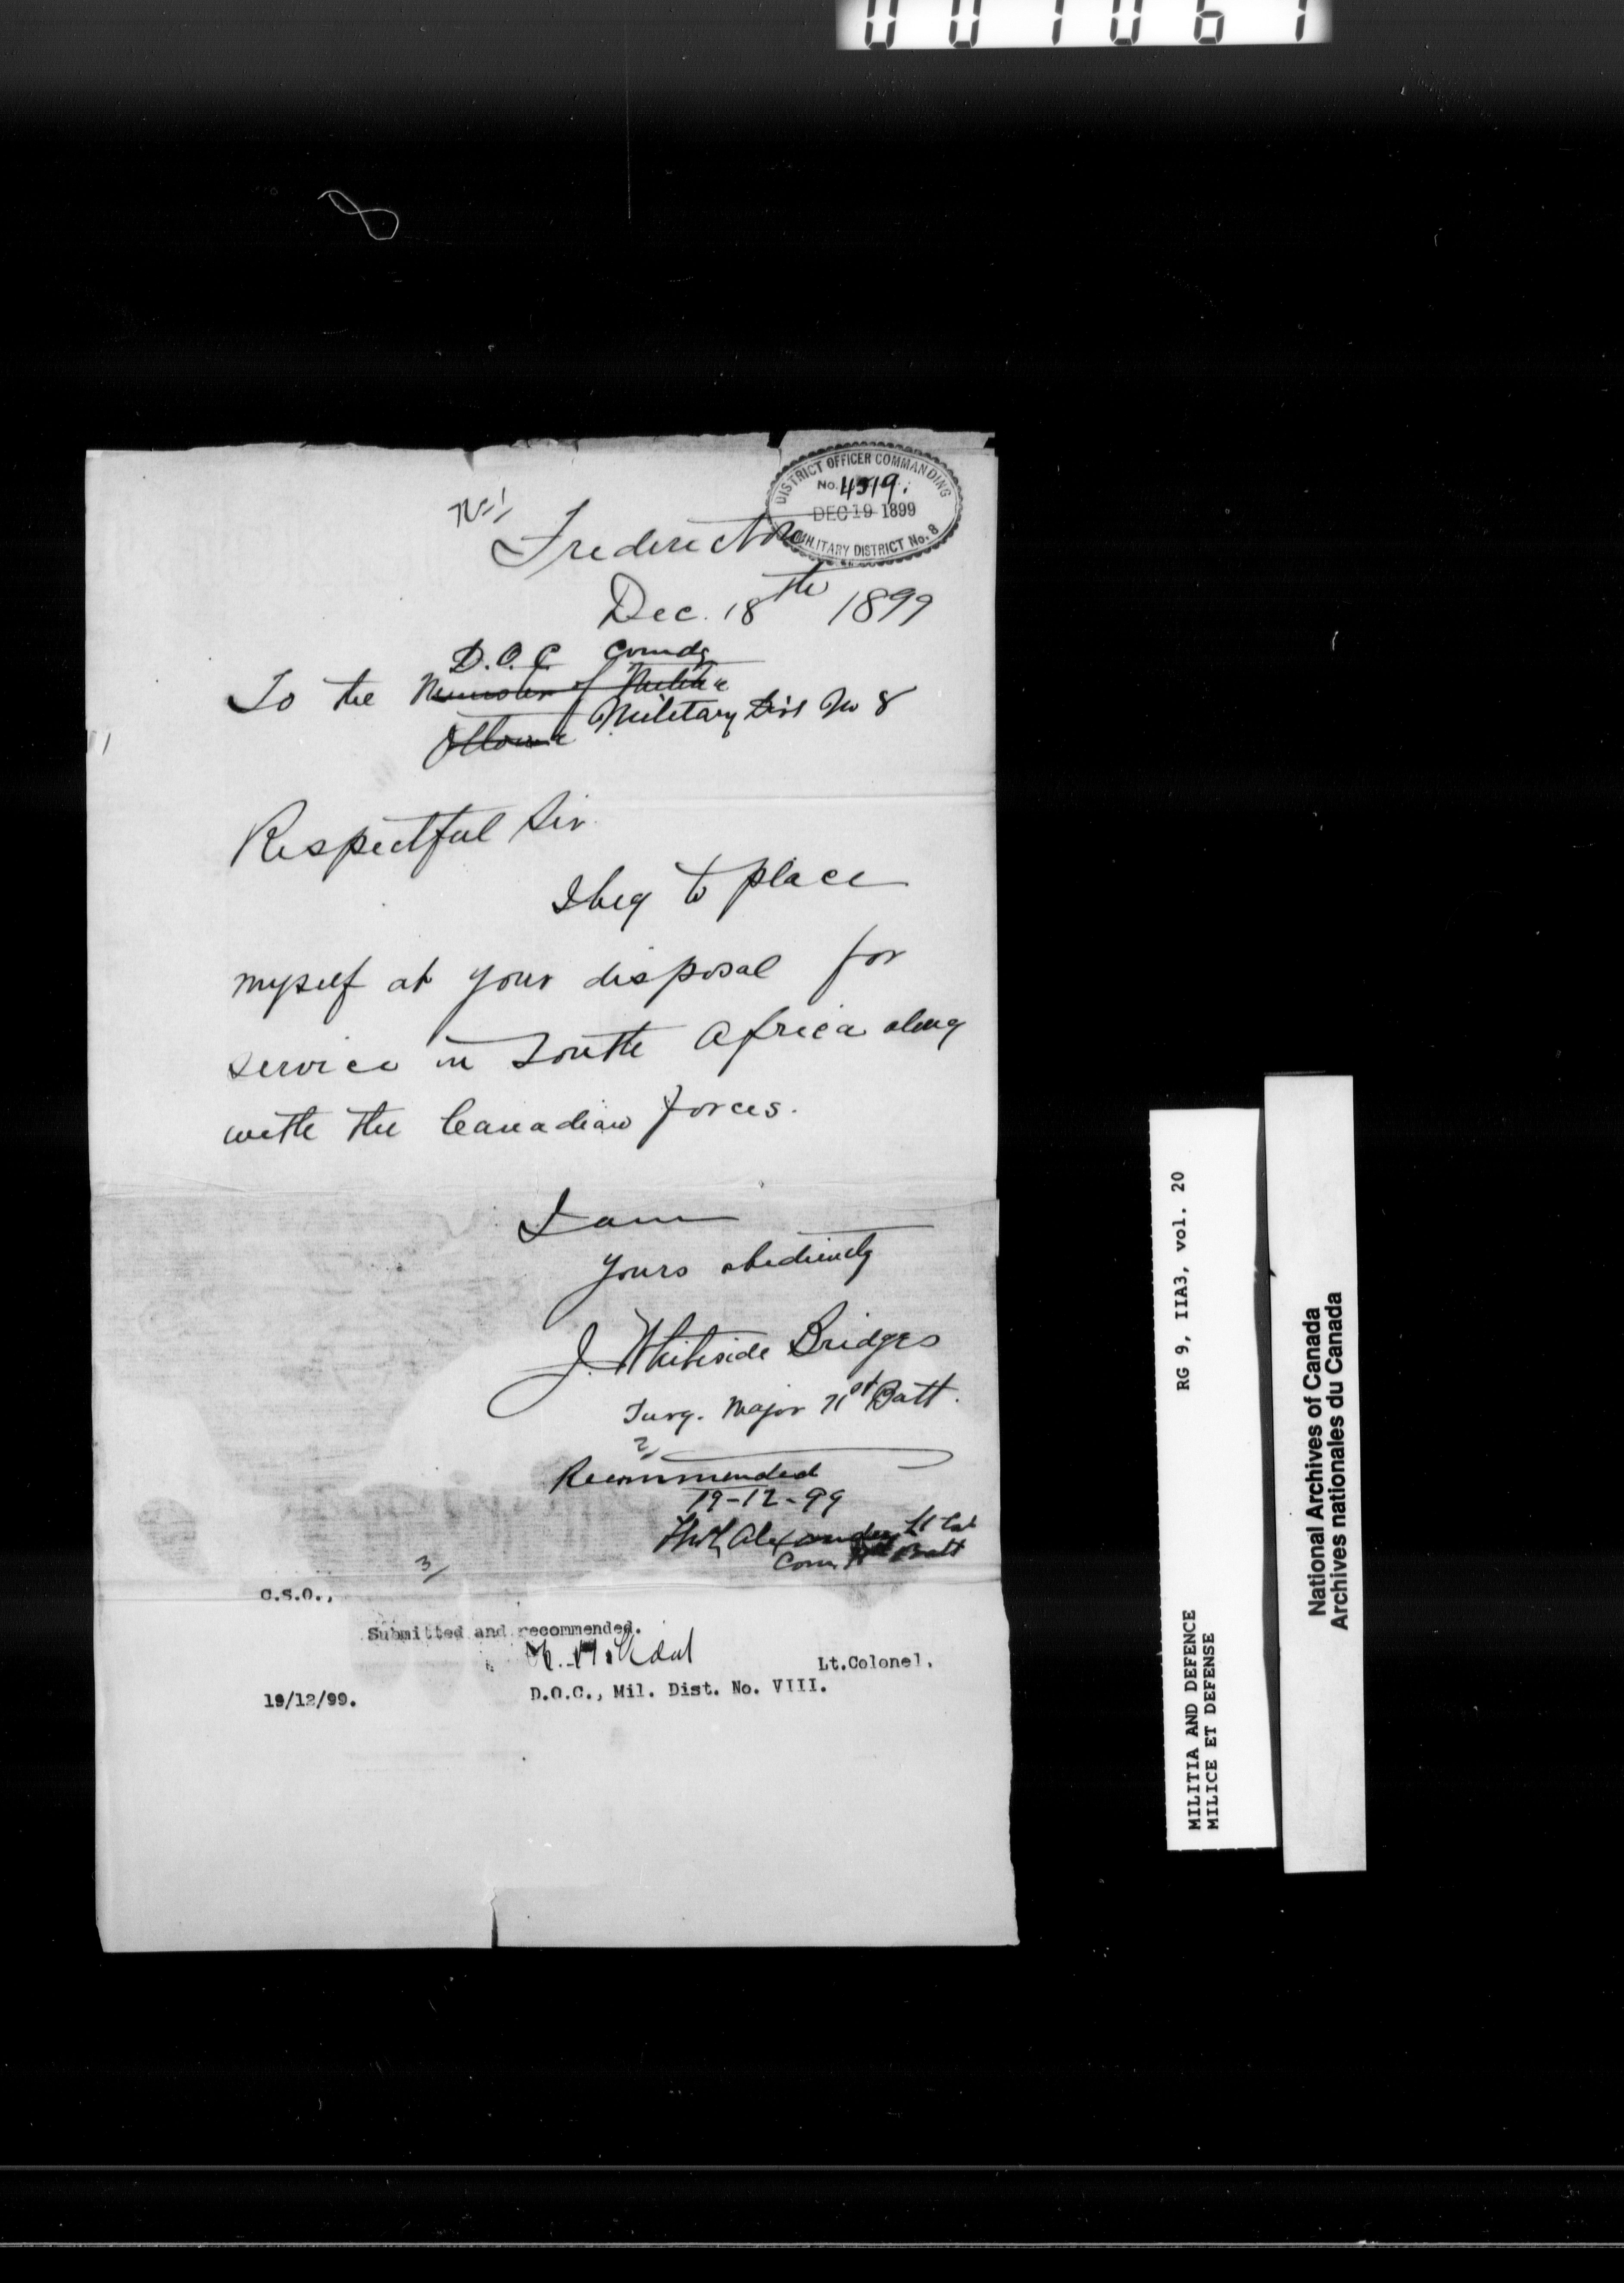 001061
8
No 1
DISTRICT OFFICER COMMANDING
No. 4519.
DEC 19 1899
MILITARY DISTRICT No. 8
Fredericton
Dec. 18th 1899
D.O.C Comdg
To the Minister of Militia
Military Dist No 8
Ottawa
Respectful Sir.
I beg to place
myself at your disposal for
service in South Africa along
with the Canadian forces.
I am
yours obediently
J. Whiteside Bridges
Surg. Major 71st Batt.
2/
Recommended
19-12-99
Alexander Lt Col
Com. Batt
3/
C.S.O.,
Submitted and recommended.
Lt.Colonel.
19/12/99.
D.O.C., Mil. Dist. No. VIII.
RG 9, IIA3, vol. 20
MILITIA AND DEFENCE
MILICE ET DEFENSE
National Archives of Canada
Archives nationales du Canada